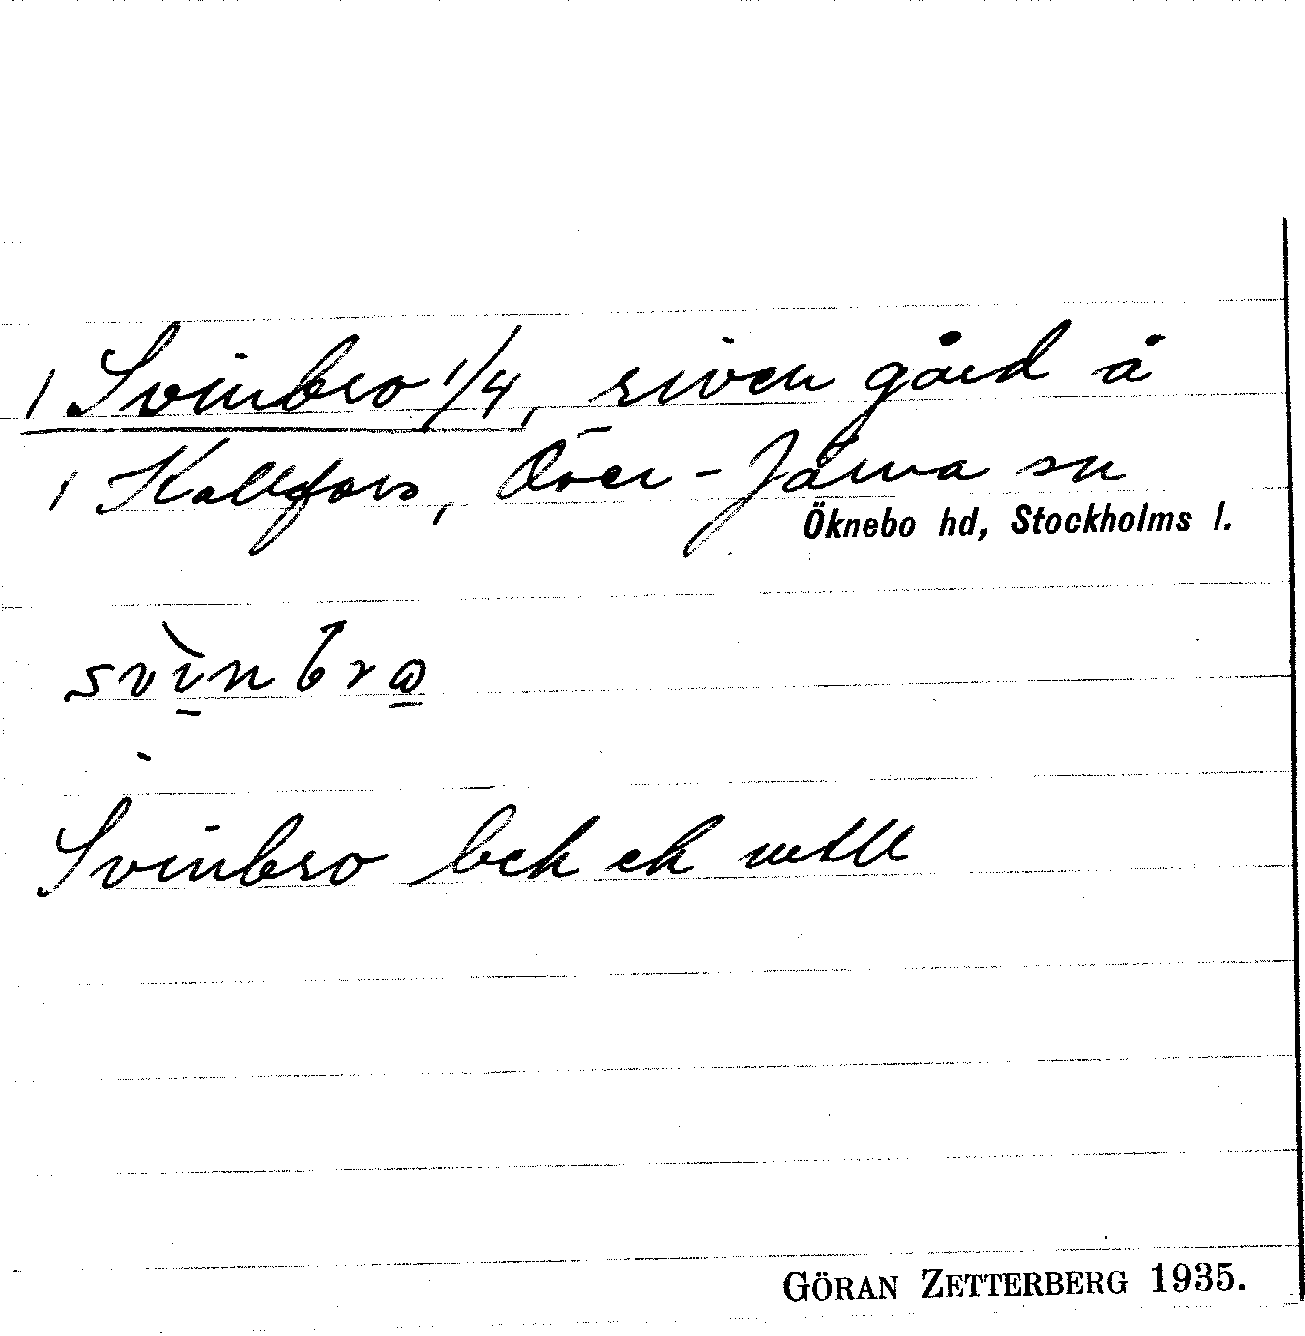 1 Svinbro 1/4, riven gård å
1 Kallfors, Över-Järna sn
Öknebo hd, Stockholms l.
svinbrω
Svinbro bek ek
GÖRAN ZETTERBERG 1935.